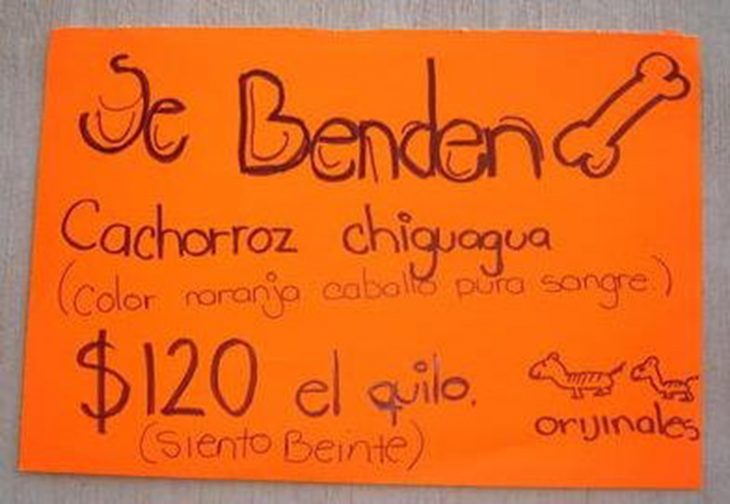 Se Benden
Cachorroz chiguagua
(color naranja caballo pura sangre.)
$120 el quilo.
(Siento Beinte)
orijinales